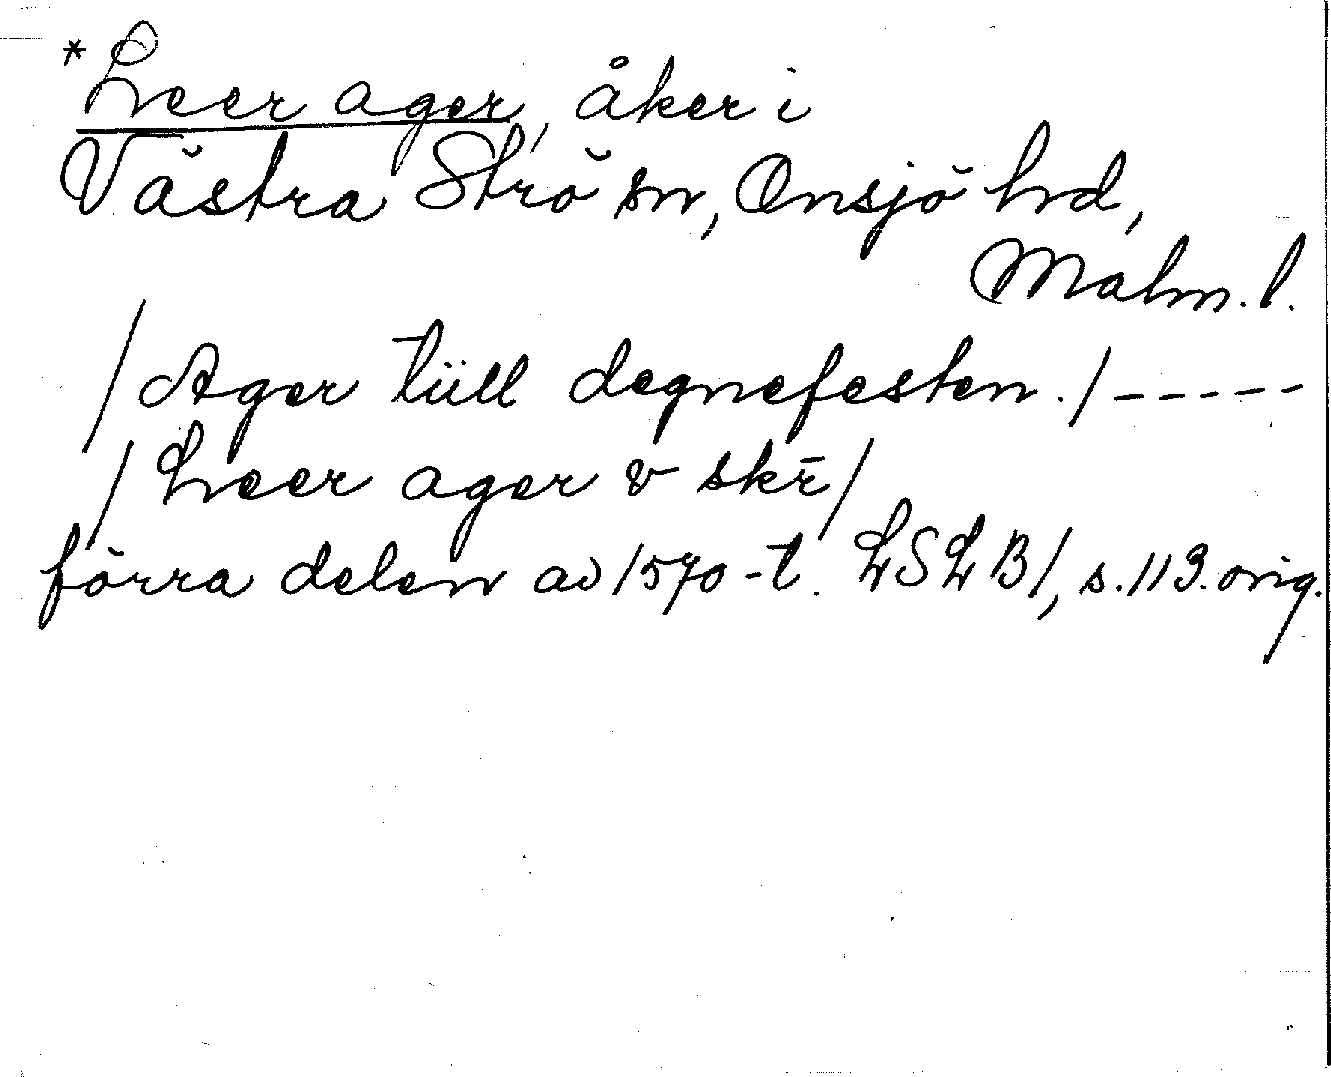 *Leer ager, åker i
Västra Strö sn, Onsjö hrd,
Malm. l.
/Ager tüll degnefesten./-----
/Leer ager v skr̄/
förra delen av 1570-t. LSLB1, s.113.orig.